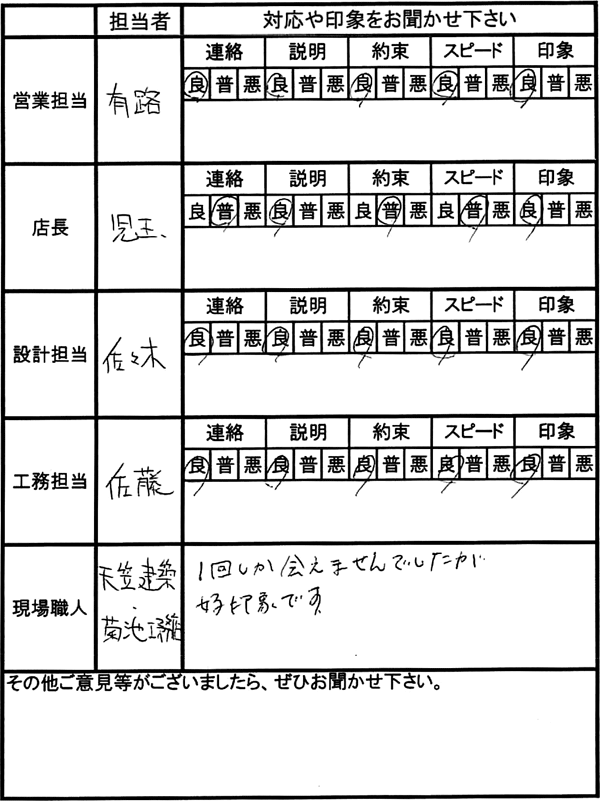 担当者 対応や印象をお聞かせ下さい
連絡 説明 約束 スピード 印象
営業担当 有路 良 普 悪 良 普 悪 良 普 悪 良 普 悪 良 普 悪
連絡 説明 約束 スピード 印象
店長 児玉 良 普 悪 良 普 悪 良 普 悪 良 普 悪 良 普 悪
連絡 説明 約束 スピード 印象
設計担当 佐々木 良 普 悪 良 普 悪 良 普 悪 良 普 悪 良 普 悪
連絡 説明 約束 スピード 印象
工務担当 佐藤 良 普 悪 良 普 悪 良 普 悪 良 普 悪 良 普 悪
現場職人 天笠建築・菊池 1回しか会えませんでしたが
好印象です
その他ご意見等がございましたら、ぜひお聞かせ下さい。